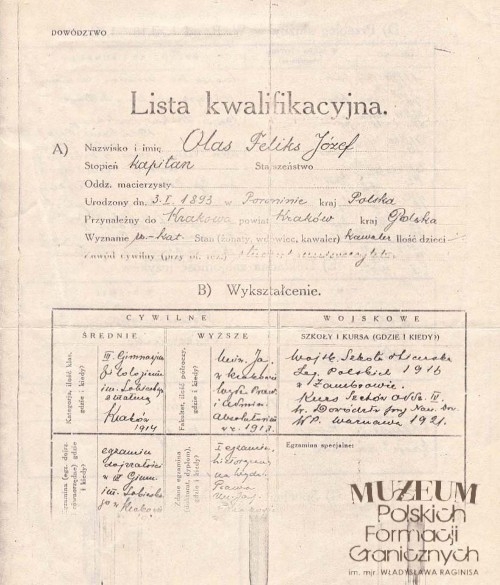 DOWÓDZTWO
Lista kwalifikacyjna.
A) Nazwisko i imię Olas Feliks Józef
Stopień kapitan Starszeństwo
Oddz. macierzysty
Urodzony dn. 3. I. 1893 w Poroninie kraj Polska
Przynależny do Krakowa powiat Kraków kraj Polska
Wyznanie rz.-kat. Stan (żonaty, wdowiec, kawaler) kawaler Ilość dzieci —
Zawód cywilny (przy of. rez.) student uniwersytetu
B) Wykształcenie.
CYWILNE
WOJSKOWE
ŚREDNIE
WYŻSZE
SZKOŁY I KURSA (GDZIE I KIEDY)?
Kategorja, ilość klas, gdzie i kiedy?
III. Gimnazjum
im. Sobieskiego
z maturą
Kraków
1914
Fakultet, ilość półroczy, gdzie i kiedy?
Uniw. Ja.
w Krakowie
i Admin.
Absolutorium
w r. 1918.
Wojsk. Szkoła
Leg. Polskich 1916
w Zambrowie.
Kurs
W.P. Warszawa 1921.
gdzie i kiedy?
egzamin
dojrzałości
w III Gimn.
im. Sobieskie
go w Krakowie
Zdane egzamina
gdzie i kiedy?
I egzamin
historyczny
na wydz.
Prawa
Egzamina specjalne:
MUZEUM
Polskich
Formacji
Granicznych
im. mjr. WŁADYSŁAWA RAGINISA